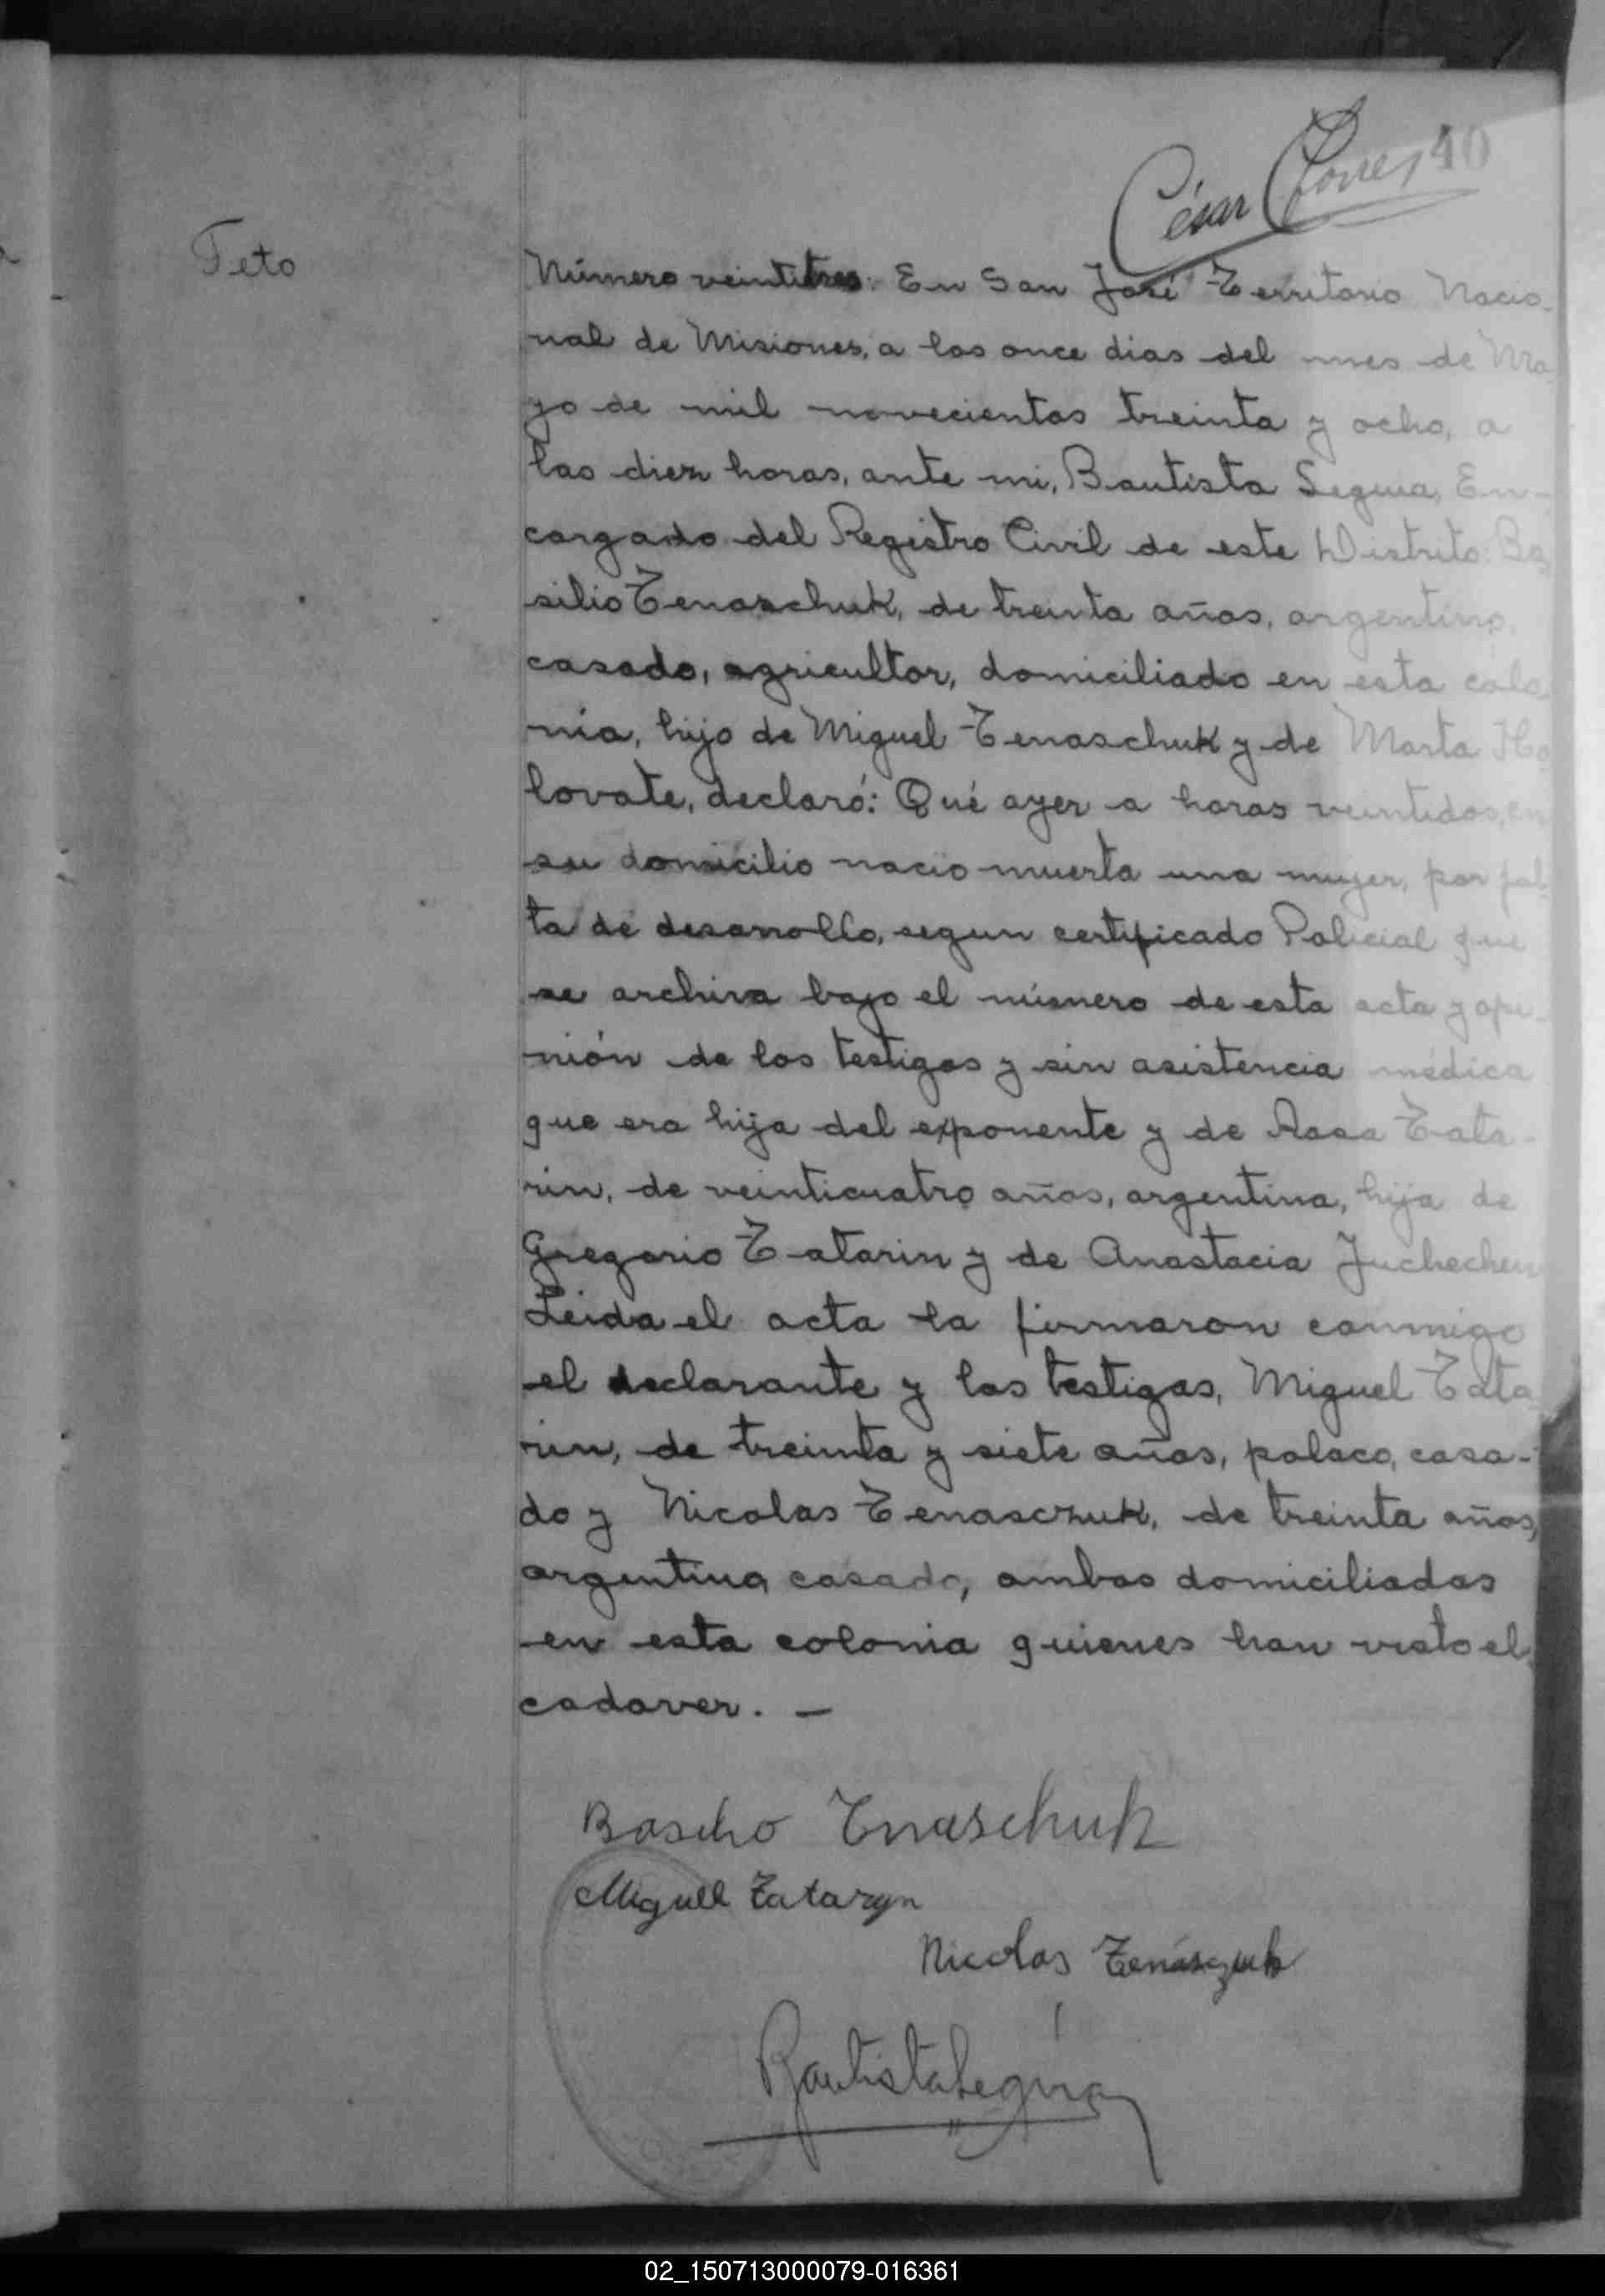 César Torres 40
Feto
Número veintitres: En San José Territorio Nacio-
nal de Misiones, a los once dias del mes de Ma-
yo de mil novecientos treinta y ocho, a
las diez horas, ante mi, Bautista Seguia, En-
cargado del Registro Civil de este Distrito: Ba-
silio Tenaschuk, de treinta años, argentino,
casado, agricultor, domiciliado en esta colo-
nia, hijo de Miguel Tenaschuk y de Marta Ho-
lovate, declaró: Qué ayer a horas veintidos, en
su domicilio nacio muerta una mujer, por fal-
ta de desarrollo, segun certificado Policial que
se archiva bajo el número de esta acta y opi-
nión de los testigos y sin asistencia médica
que era hija del exponente y de Rosa Tata-
rin, de veinticuatro años, argentina, hija de
Gregorio Tatarin y de Anastacia Juchechen
Leida el acta la firmaron conmigo
el declarante y los testigos, Miguel Tata-
rin, de treinta y siete años, polaco, casa-
do y Nicolas Tenasczuk, de treinta años,
argentino, casado, ambos domiciliados
en esta colonia quienes han visto el
cadaver. —
Basilio Tnaschuk
Miguel Tataryn
Nicolas Tenasczuk
Bautista Seguia
02_150713000079-016361